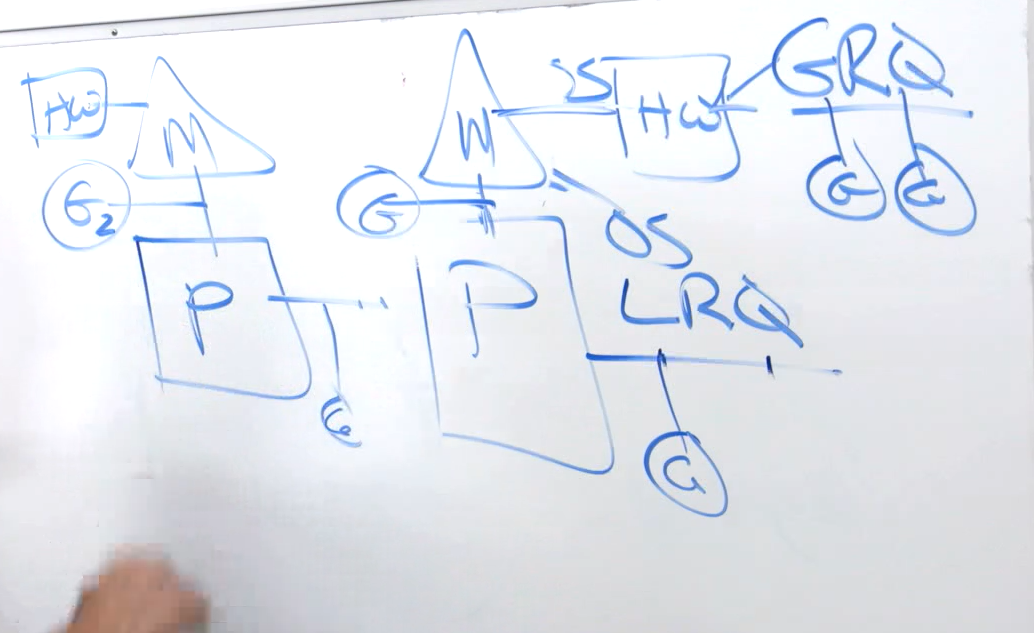 HW
M
G2
P
G
M
OS
HW
GRQ
G
G
G
OS
P
LRQ
G